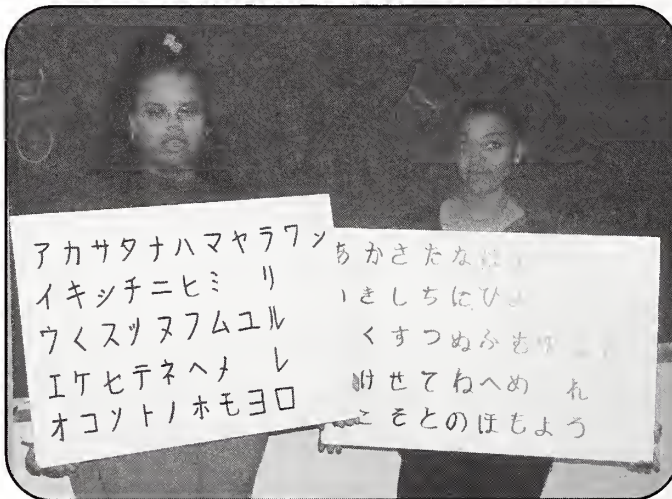 アカサタナハマヤラワン
イキシチニヒミ リ
ウくスツヌフムユル
エケセテネヘメ レ
オコソトノホモヨロ
かさたなは
きしちにひ
くすつぬふむゆ
けせてねへめ れ
こそとのほもよう